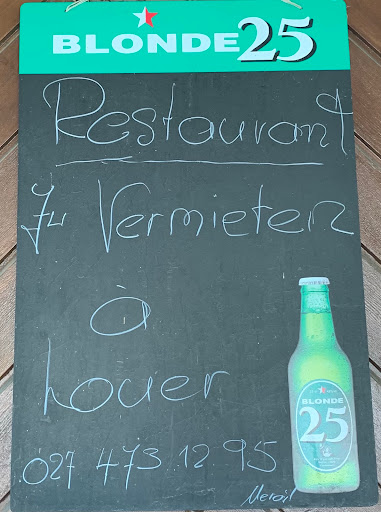 BLONDE 25
Restaurant
Zu Vermieten
à
Louer
027 473 12 95
BLONDE
25